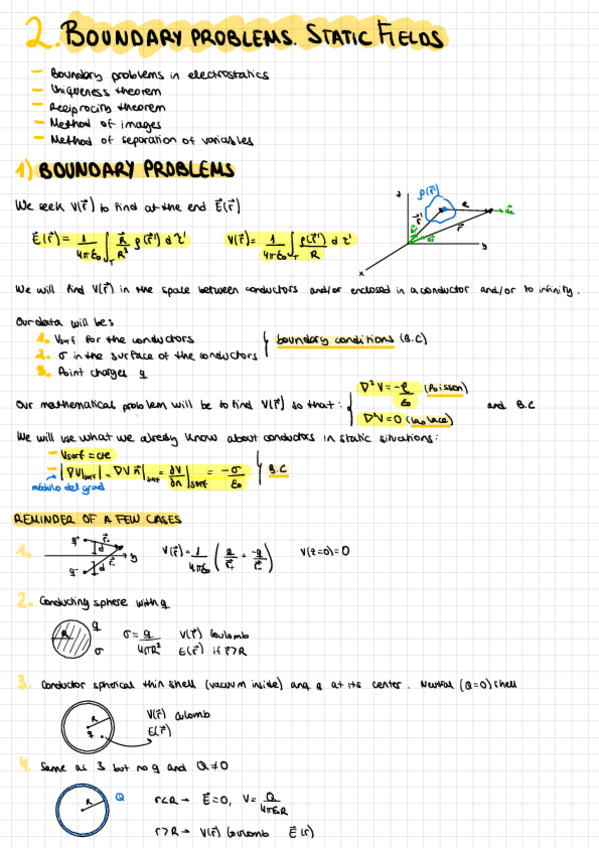 2. BOUNDARY PROBLEMS. STATIC FIELDS
- Boundary problems in electrostatics
- Uniqueness theorem
- Reciprocity theorem
- Method of images
- Method of separation of variables
1) BOUNDARY PROBLEMS
We seek V(r⃗) to find at the end E⃗(r⃗)
E⃗(r⃗) = 1/4πε₀ ∫τ R⃗/R³ ρ(r⃗') dτ' V(r⃗) = 1/4πε₀ ∫τ ρ(r⃗')/R dτ'
ρ(r⃗') R r⃗' r⃗ z y x
We will find V(r⃗) in the space between conductors and/or enclosed in a conductor and/or to infinity.
Our data will be:
1. Vsurf for the conductors
2. σ in the surface of the conductors
3. Point charges q
boundary conditions (B.C)
Our mathematical problem will be to find V(r⃗) so that: ∇²V = -ρ/ε₀ (Poisson) and B.C
∇²V = 0 (Laplace)
We will use what we already know about conductors in static situations:
- Vsurf = cte
- |∇V|surf| = ∇V n⃗|surf = ∂V/∂n|surf = -σ/ε₀ B.C
módulo del grad
REMINDER OF A FEW CASES
1. q+ d y q- d V(r⃗) = 1/4πε₀ (q/r+ + -q/r-) V(z=0) = 0
2. Conducting sphere with q
R q σ σ = q/4πR² V(r⃗) Coulomb
E(r⃗) if r>R
3. Conductor spherical thin shell (vacuum inside) and q at its center. Neutral (Q=0) shell
R q V(r⃗) Culomb
E(r⃗)
4. Same as 3 but no q and Q≠0
R Q r<R → E⃗=0, V = Q/4πε₀R
r>R → V(r⃗) Coulomb E⃗(r)